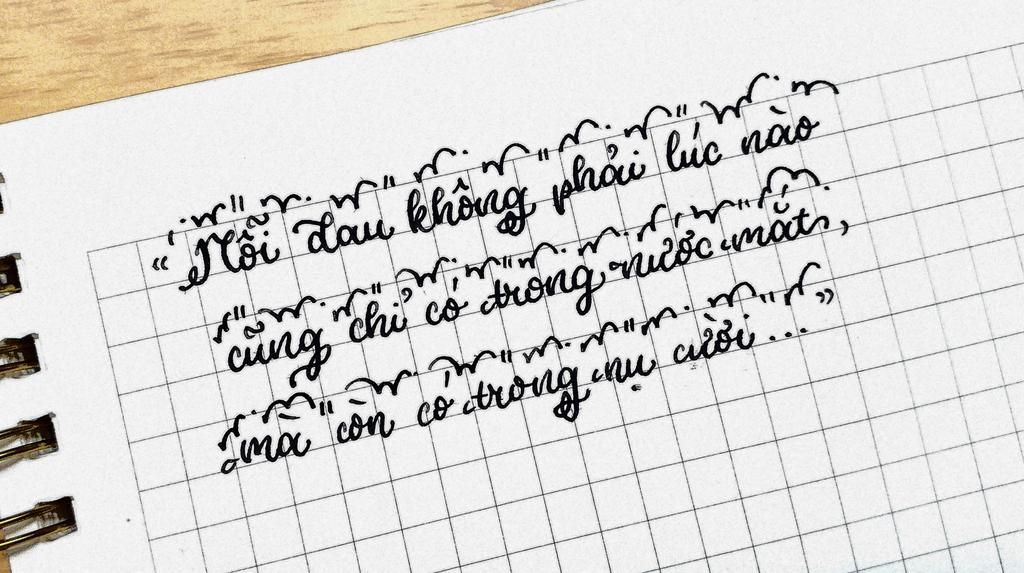 “Nỗi đau không phải lúc nào
cũng chỉ có trong nước mắt,
mà còn có trong nụ cười...”